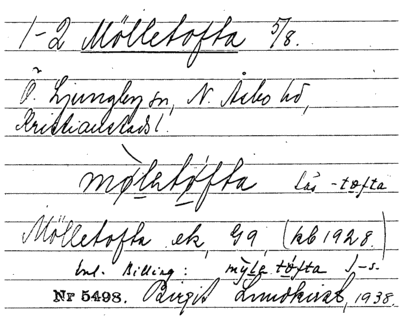 1-2 Mölletofta 5/8.
Ö. Ljungby sn, N. Åsbo hd,
Kristianstads l.
mø̀lətòfta läs -tofta
Mölletofta ek, G9, (kb 1928.)
enl. Billing: mỳlətofta J-s.
Nr 5498. Birgit Lundkvist, 1938.